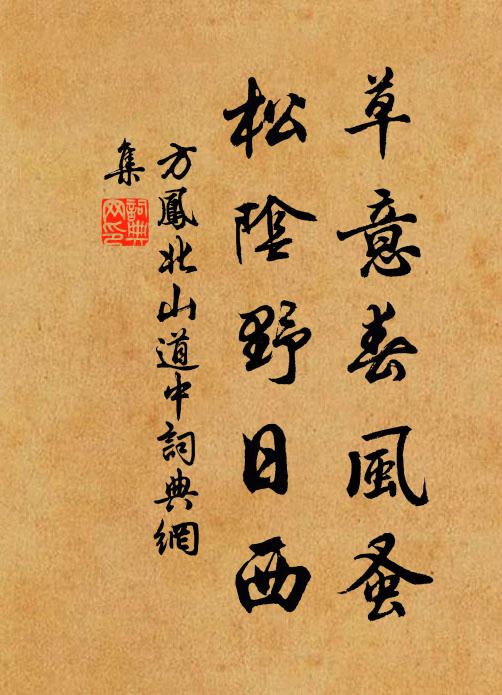 草意春風蚤
松陰野日西
方鳳北山道中詞典網
集
詞典
网印